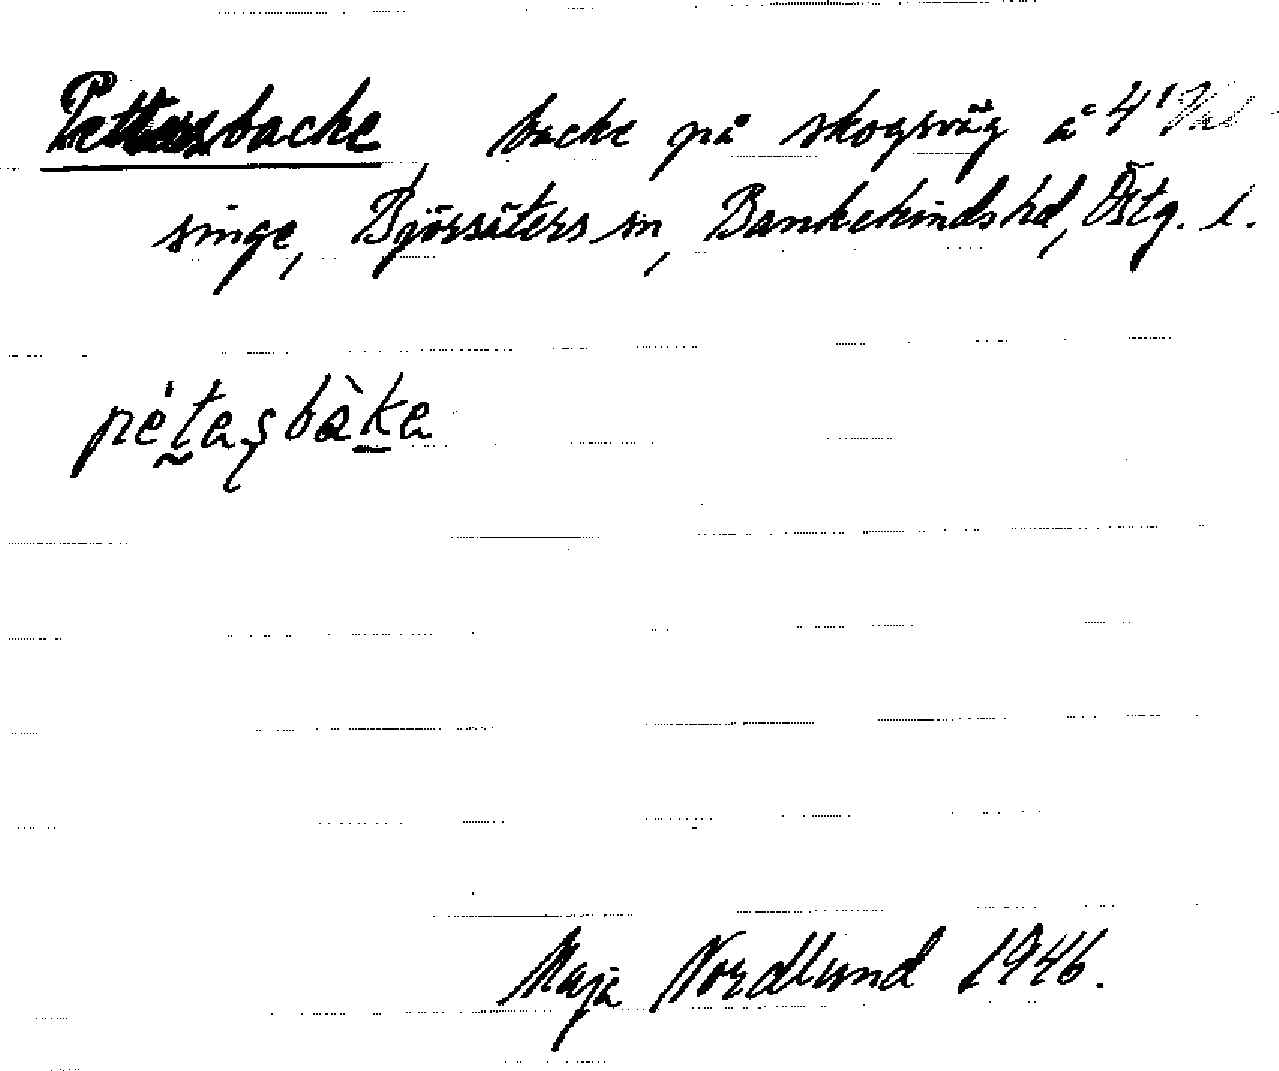 Pettersbacke, backe på skogsväg å 4¹ Val
singe, Björsäters sn, Bankekinds hd, Östg. l.
pètaşbàka
Maja Nordlund 1946.